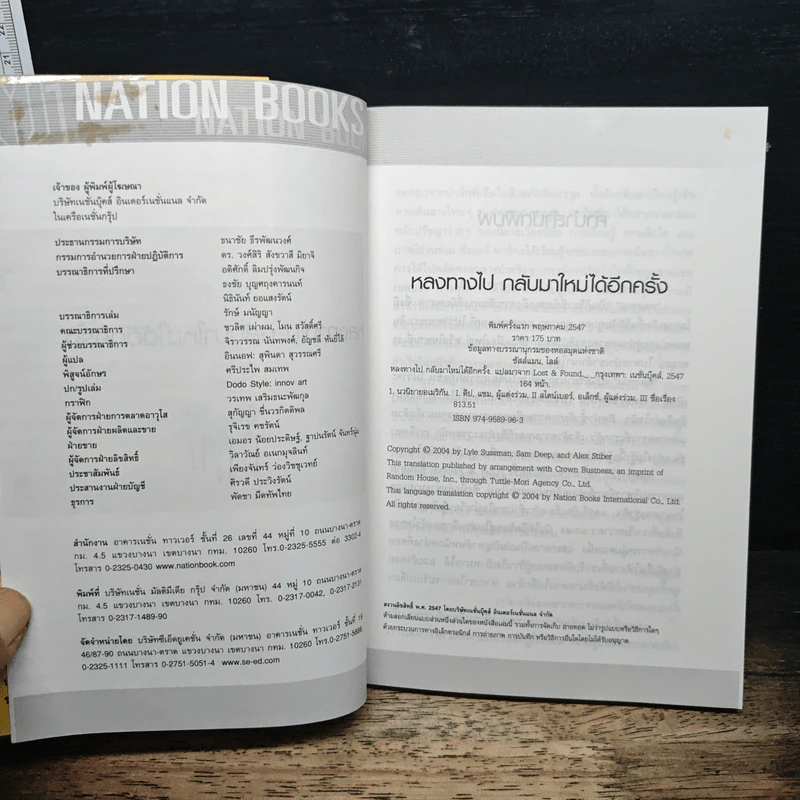 21
22
NATION BOOKS
NATION BOOKS
เจ้าของ ผู้พิมพ์ผู้โฆษณา
บริษัทเนชั่นบุ๊คส์ อินเตอร์เนชั่นแนล จำกัด
ในเครือเนชั่นกรุ๊ป
ประธานกรรมการบริษัท ธนาชัย ธีรพัฒนวงศ์
กรรมการอำนวยการฝ่ายปฏิบัติการ ดร. วงศ์สิริ สังขวาสี มิยาจิ
บรรณาธิการที่ปรึกษา อดิศักดิ์ ลิมปรุ่งพัฒนกิจ
ธงชัย บุญศฤงคารนนท์
นิธินันท์ ยอแสงรัตน์
บรรณาธิการเล่ม รักษ์ มนัญญา
คณะบรรณาธิการ ชวลิต เผ่าผม, โมน สวัสดิ์ศรี
ผู้ช่วยบรรณาธิการ จิราวรรณ นันทพงศ์, อัญชลี พันธุ์โอ้
ผู้แปล อินนอฟ: สุพินดา สุวรรณศรี
พิสูจน์อักษร ศรีประไพ สมเทพ
ปก/รูปเล่ม Dodo Style: innov art
กราฟิก วรเทพ เสริมธนะพัฒกุล
ผู้จัดการฝ่ายการตลาดอาวุโส สุกัญญา ชื่นวรกิตติพล
ผู้จัดการฝ่ายผลิตและขาย รุจิเรข คชรัตน์
ฝ่ายขาย เอมอร น้อยประดิษฐ์, ฐาปนรัตน์ จันทร์นุ่ม
ผู้จัดการฝ่ายลิขสิทธิ์ วิลาวัณย์ อเนกมุจลินท์
ประชาสัมพันธ์ เพียงจันทร์ ว่องวิชชุเวทย์
ประสานงานฝ่ายบัญชี ศิรวดี ประวิงรัตน์
ธุรการ พัดชา มีดทัพไทย
สำนักงาน อาคารเนชั่น ทาวเวอร์ ชั้นที่ 26 เลขที่ 44 หมู่ที่ 10 ถนนบางนา-ตราด
กม. 4.5 แขวงบางนา เขตบางนา กทม. 10260 โทร.0-2325-5555 ต่อ 3302-4
โทรสาร 0-2325-0430 www.nationbook.com
พิมพ์ที่ บริษัทเนชั่น มัลติมีเดีย กรุ๊ป จำกัด (มหาชน) 44 หมู่ 10 ถนนบางนา-ตราด
กม. 4.5 แขวงบางนา เขตบางนา กทม. 10260 โทร. 0-2317-0042, 0-2317-2131
โทรสาร 0-2317-1489-90
จัดจำหน่ายโดย บริษัทซีเอ็ดยูเคชั่น จำกัด (มหาชน) อาคารเนชั่น ทาวเวอร์ ชั้นที่ 19
46/87-90 ถนนบางนา-ตราด แขวงบางนา เขตบางนา กทม. 10260 โทร.
0-2325-1111 โทรสาร 0-2751-5051-4 www.se-ed.com
หลงทางไป กลับมาใหม่ได้อีกครั้ง
พิมพ์ครั้งแรก พฤษภาคม 2547
ราคา 175 บาท
ข้อมูลทางบรรณานุกรมของหอสมุดแห่งชาติ
ซัสส์แมน, ไลล์
หลงทางไป กลับมาใหม่ได้อีกครั้ง. แปลมาจาก Lost & Found._ _กรุงเทพฯ: เนชั่นบุ๊คส์, 2547
164 หน้า.
1. นวนิยายอเมริกัน. I. ดีป, แซม, ผู้แต่งร่วม. II สไตน์เบอร์, อเล็กซ์, ผู้แต่งร่วม, III ชื่อเรื่อง
813.51
ISBN 974-9589-96-3
Copyright © 2004 by Lyle Sussman, Sam Deep, and Alex Stiber
This translation published by arrangement with Crown Business, an imprint of
Random House, Inc., through Tuttle-Mori Agency Co., Ltd.
Thai language translation copyright © 2004 by Nation Books International Co., Ltd.
All rights reserved.
สงวนลิขสิทธิ์ พ.ศ. 2547 โดยบริษัทเนชั่นบุ๊คส์ อินเตอร์เนชั่นแนล จำกัด
ห้ามลอกเลียนแบบส่วนหนึ่งส่วนใดของหนังสือเล่มนี้ รวมทั้งการจัดเก็บ ถ่ายทอด ไม่ว่ารูปแบบหรือวิธีการใดๆ
ด้วยกระบวนการทางอิเล็กทรอนิกส์ การถ่ายภาพ การบันทึก หรือวิธีการอื่นใดโดยไม่ได้รับอนุญาต